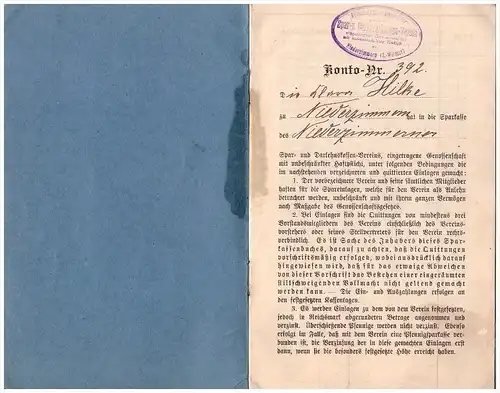 Spar- u. Darlehnskassen-Verein
Niederzimmern
Konto-Nr. 392.
Die Klara Hilke
zu Niederzimmern hat in die Sparkasse
des Niederzimmerner
Spar- und Darlehnskassen-Vereins, eingetragene Genossenschaft
mit unbeschränkter Haftpflicht, unter folgenden Bedingungen die
im nachstehenden verzeichneten und quittierten Einlagen gemacht:
1. Der vorbezeichnete Verein und seine sämtlichen Mitglieder
haften für die Spareinlagen, welche für den Verein als Anlehn
betrachtet werden, unbeschränkt und mit ihrem ganzen Vermögen
nach Maßgabe des Genossenschaftsgesetzes.
2. Bei Einlagen sind die Quittungen von mindestens drei
Vorstandsmitgliedern des Vereins einschließlich des Vereins-
vorstehers oder seines Stellvertreters für den Verein rechts-
verbindlich. Es ist Sache des Inhabers dieses Spar-
kassenbuches, darauf zu achten, daß die Quittungen
vorschriftsmäßig erfolgen, wobei ausdrücklich darauf
hingewiesen wird, daß für das etwaige Abweichen
von dieser Vorschrift das Bestehen einer eingeräumten
stillschweigenden Vollmacht nicht geltend gemacht
werden kann. — Die Ein- und Auszahlungen erfolgen an
den festgesetzten Kassentagen.
3. Es werden Einlagen zu dem von dem Verein festgesetzten,
jedoch in Reichsmark abgerundeten Betrage angenommen und
verzinst. Überschießende Pfennige werden nicht verzinst. Ebenso
erfolgt im Falle, daß mit dem Verein eine Pfennigsparkasse ver-
bunden ist, die Verzinsung der in diese gemachten Einlagen erst
dann, wenn sie die besonders festgesetzte Höhe erreicht haben.